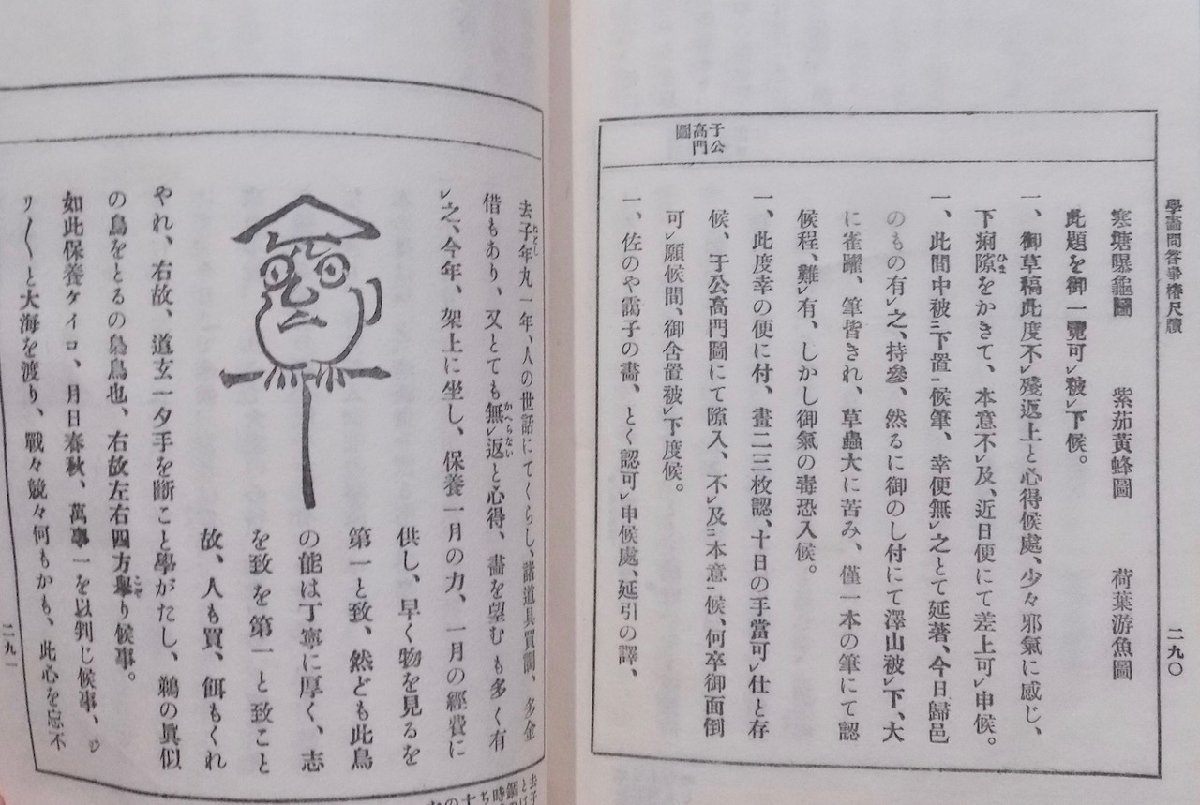 學畫問答崋椿尺牘
二九〇
寒塘曝龜圖 紫茄黃蜂圖 荷葉游魚圖
此題を御一覽可㆑被㆑下候。
一、御草稿此度不㆑殘返上と心得候處、少々邪氣に感じ、
下痢隙をかきて、本意不㆑及、近日便にて差上可㆑申候。
ひま
一、此間中被㆓下置㆒候筆、幸便無㆑之とて延著、今日歸邑
のもの有㆑之、持參、然るに御のし付にて澤山被㆑下、大
に雀躍、筆皆きれ、草蟲大に苦み、僅一本の筆にて認
候程、難㆑有、しかし御氣の毒恐入候。
一、此度幸の便に付、畫二三枚認、十日の手當可㆑仕と存
候、于公高門圖にて隙入、不㆑及㆓本意㆒候、何卒御面倒
可㆑願候間、御含置被㆑下度候。
一、佐のや靄子の畵、とく認可㆑申候處、延引の譯、
于公
高門
圖
去子年九一年、人の世話にてくらし、諸道具買調、多金
借もあり、又とても無㆑返と心得、畵を望むも多く有
かへらない
㆑之、今年、架上に坐し、保養一月の力、一月の經費に
供し、早く物を見るを
第一と致、然ども此鳥
の能は丁寧に厚く、志
を致を第一と致こと
故、人も買、餌もくれ
やれ、右故、道玄一夕手を斷こと學がたし、鵜の眞似
の鳥をとるの梟鳥也、右故左右四方擧り候事。
こぞ
如此保養ケイコ、月日春秋、萬事一を以判じ候事、ジ
リ〱と大海を渡り、戰々競々何もかも、此心を忘不
二九一